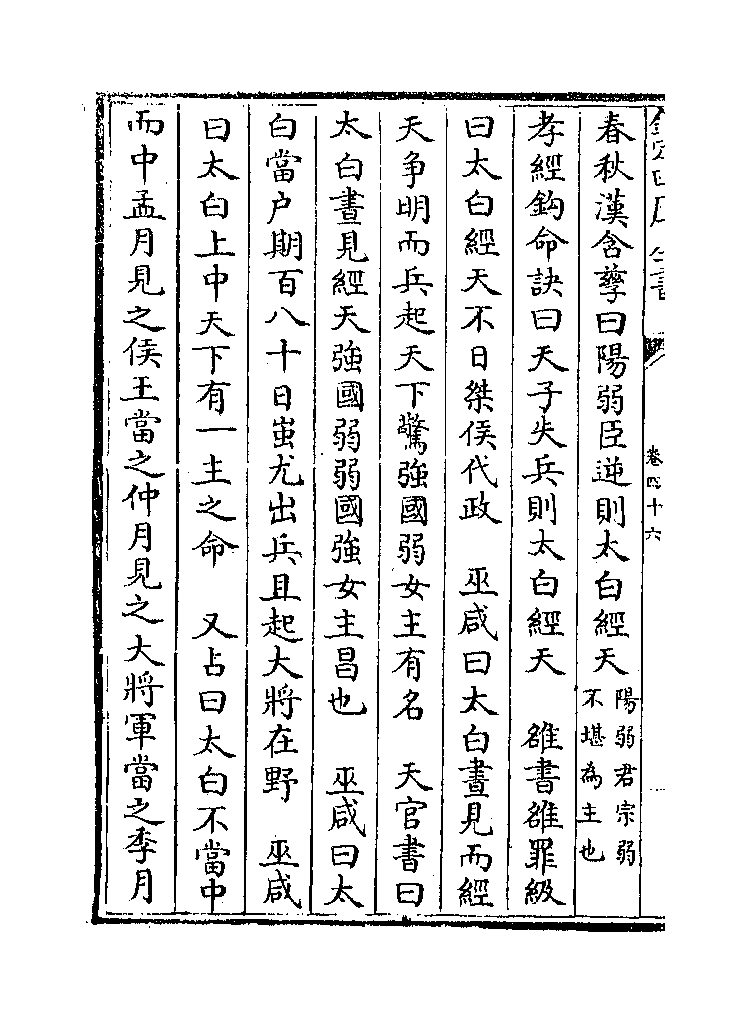 卷四十六
春秋漢含孽曰陽弱臣逆則太白經天陽弱君宗弱不堪為主也
孝經鈎命訣曰天子失兵則太白經天　雒書雒罪級
曰太白經天不日桀侯代政　巫咸曰太白晝見而經
天争明而兵起天下驚強國弱女主有名　天官書曰
太白晝見經天強國弱弱國強女主昌也　巫咸曰太
白當户期百八十日蚩尤出兵且起大將在野　巫咸
曰太白上中天下有一主之命　又占曰太白不當中
而中孟月見之侯王當之仲月見之大將軍當之季月